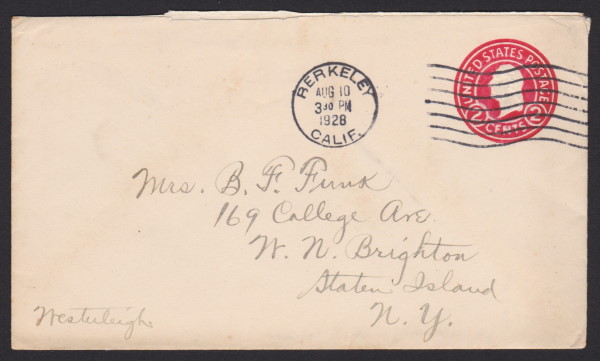 BERKELEY
AUG 10
3 30 PM
1928
CALIF.
UNITED STATES POSTAGE
2 CENTS 2
Mrs. B. F. Funk
169 College Ave.
W. N. Brighton
Staten Island
N. Y.
Westerleigh